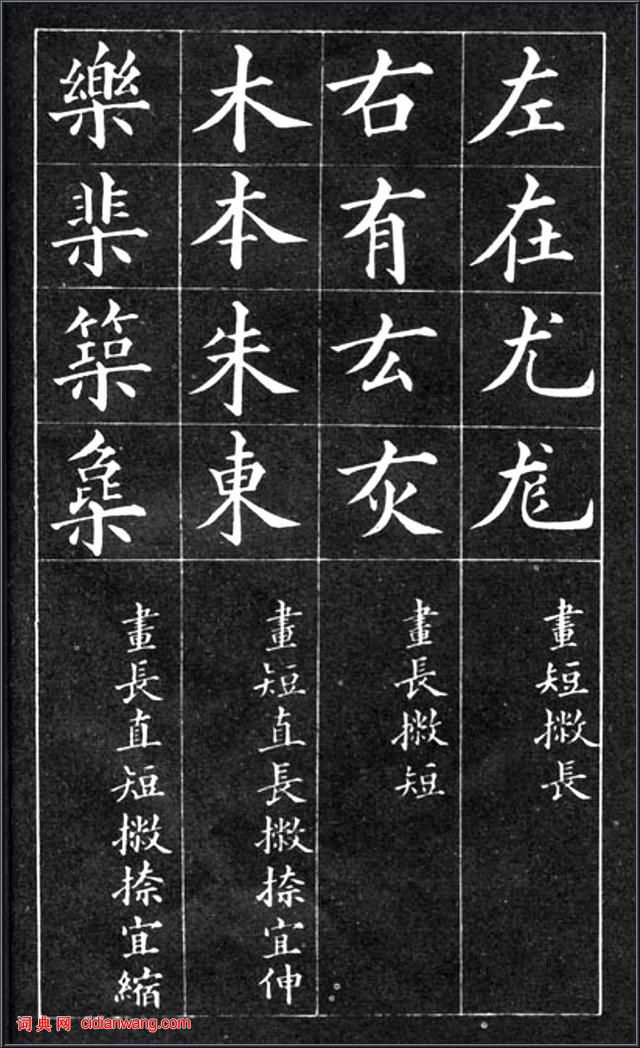 左在尤尨
畫短撇長
右有厷灰
畫長撇短
木本朱東
畫短直長撇捺宜伸
樂棐築
畫長直短撇捺宜縮
词典网 cidianwang.com